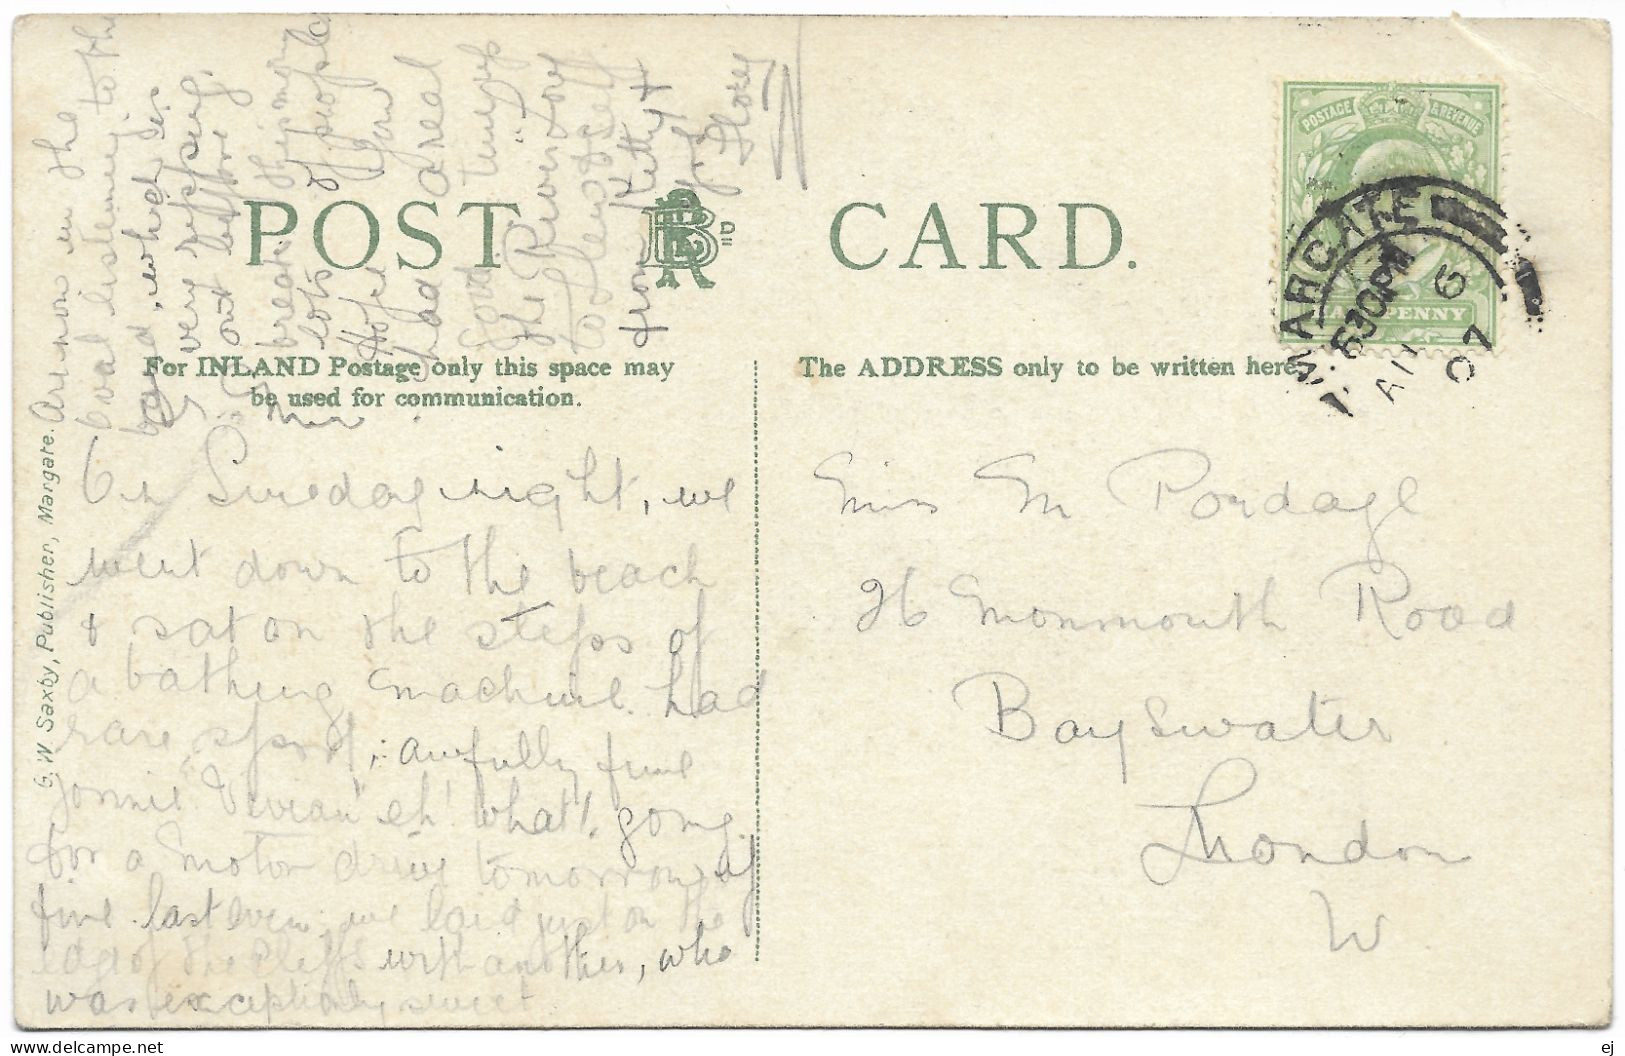 POST CARD.
For INLAND Postage only this space may
be used for communication.
The ADDRESS only to be written here.
G. W. Saxby, Publisher, Margate.
POSTAGE & REVENUE
HALFPENNY
MARGATE
6 30 PM
AU 6
07
On Sunday night, we
went down to the beach
& sat on the steps of
a bathing machine. Had
rare sport, awfully fine
"Vivian" eh! what! going
for a motor drive tomorrow if
fine. last even. we laid just on the
edge of the cliffs with another, who
was exceptionally sweet.
Miss M Pordage
26 Monmouth Road
Bayswater
London
W.
Am now in the
listening to the
band, which is
very ripping,
out before
breakfast this morng
lots of people
Hope you
had a real
good time
the River. Love
to & self
from Kitty &